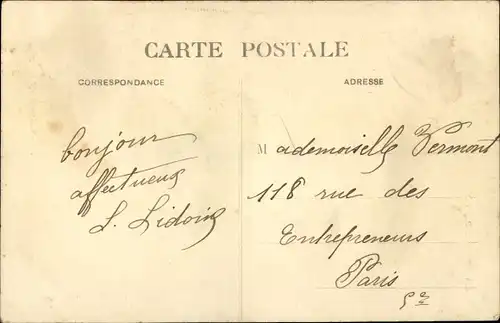 CARTE POSTALE
CORRESPONDANCE
ADRESSE
bonjour
affectueux
Mademoiselle Vermont
118 rue des
Entrepreneurs
Paris